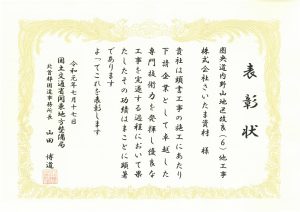 表彰状
圏央道内野山地区改良(6)他工事
株式会社さいたま資材 様
貴社は頭書工事の施工にあたり
下請企業として卓越した
専門技術力を発揮し優良な
工事を完遂する過程において果
たしたその功績はまことに顕著
であります
よってこれを表彰します
令和元年七月十七日
国土交通省関東地方整備局
北首都国道事務所長 山田 博道